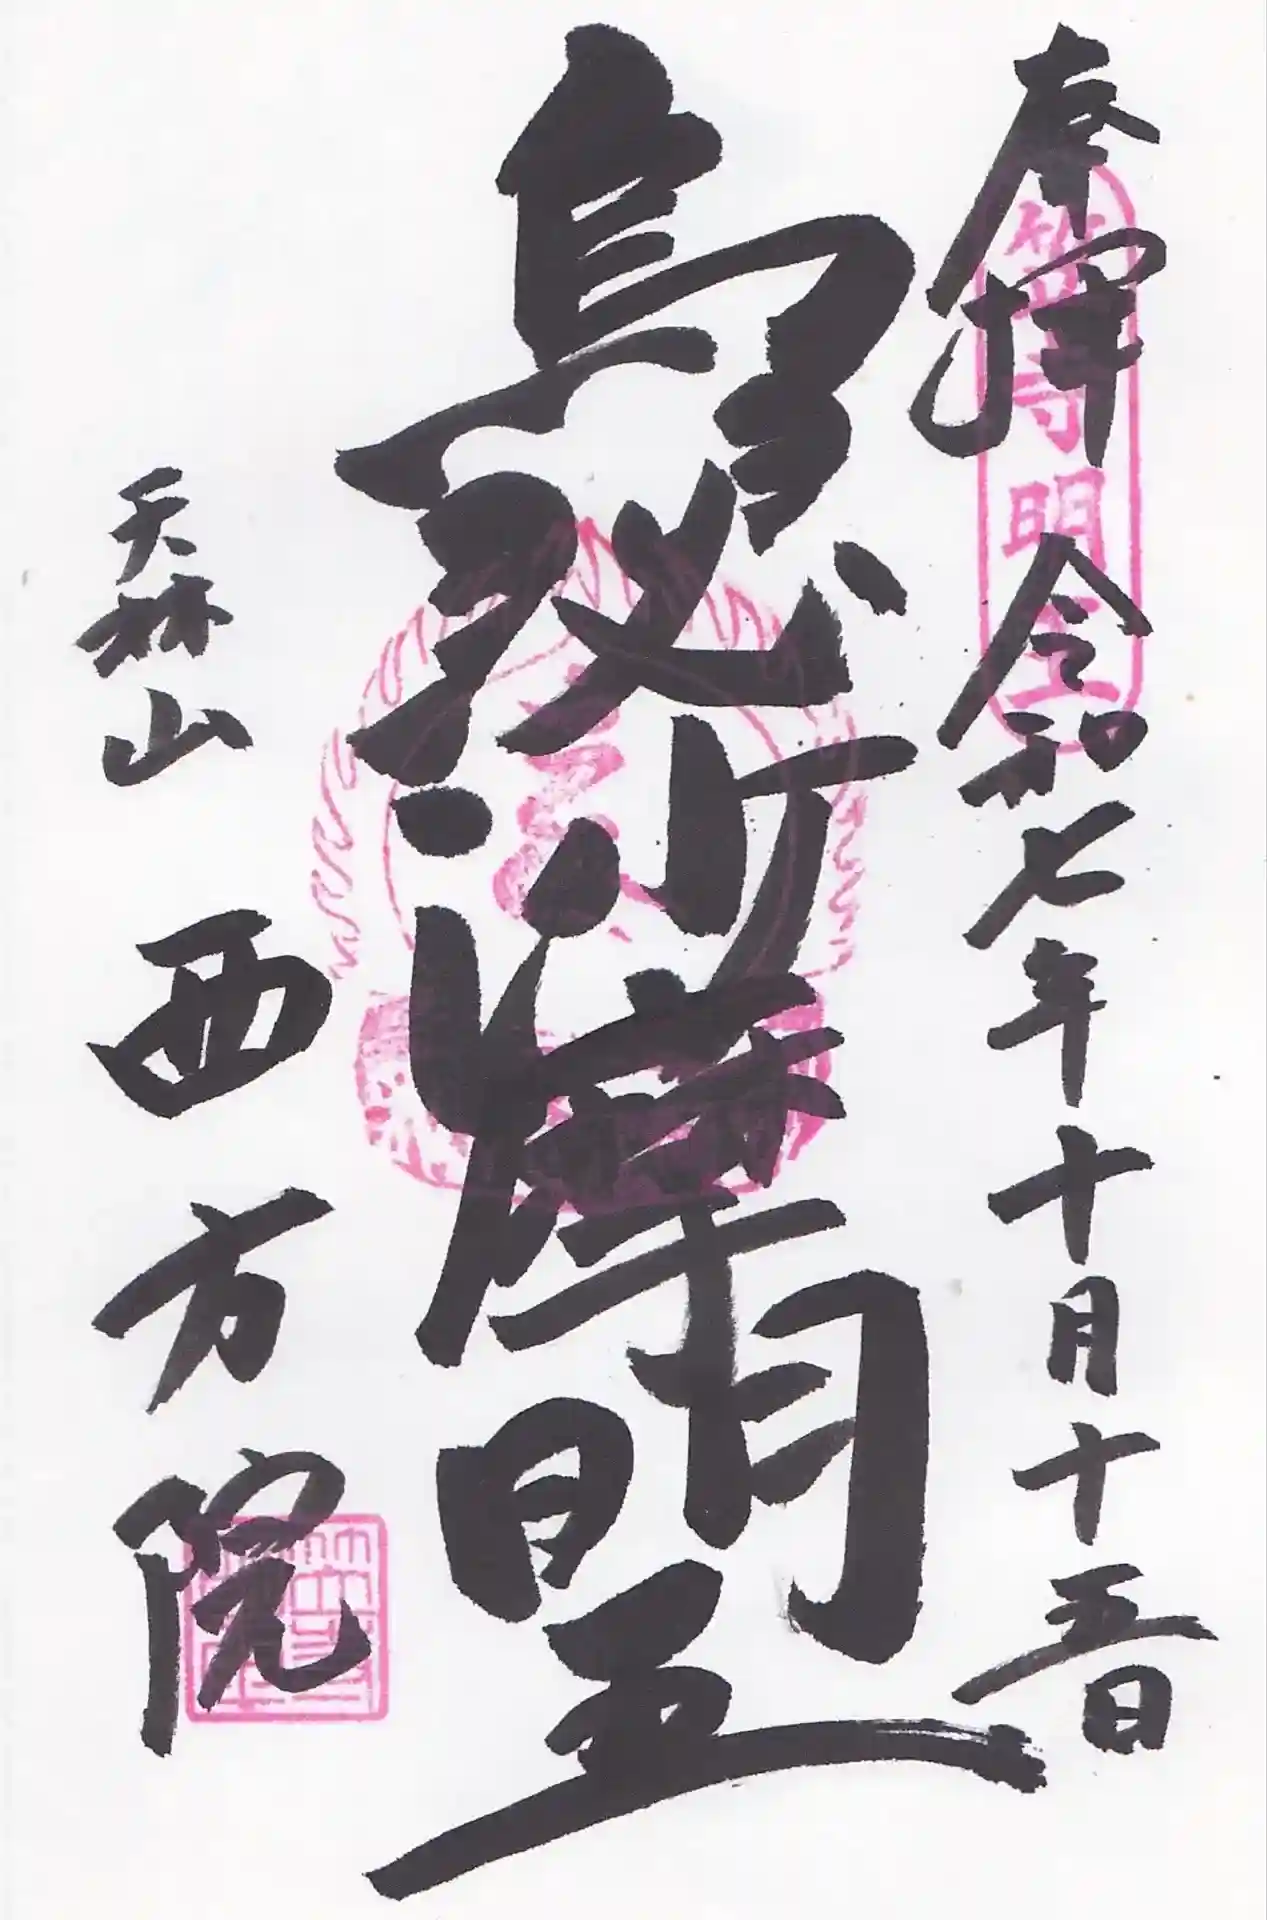 奉拝 令和七年十月十五日
笠寺明王
烏瑟沙摩明王
天林山 西方院